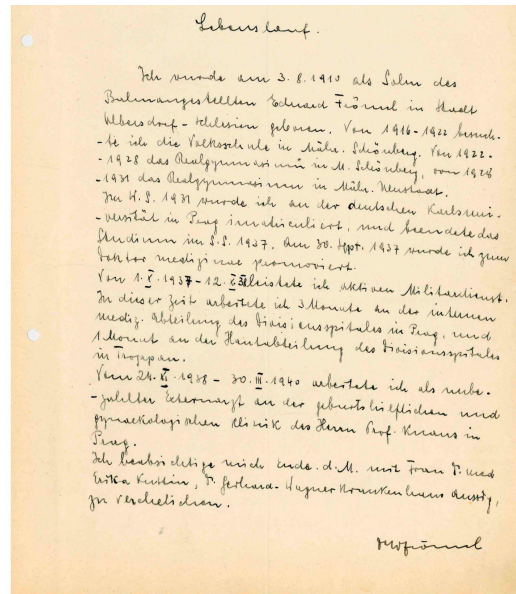 Lebenslauf.
Ich wurde am 3.8.1910 als Sohn des
Bahnangestellten Eduard Frömel in Stadt
Olbersdorf - Schlesien geboren. Von 1916-1922 besuch-
-te ich die Volksschule in Mähr. Schönberg. Von 1922-
-1928 das Realgymnasium in M. Schönberg, von 1928
-1931 das Realgymnasium in Mähr. Neustadt.
Im W.S. 1931 wurde ich an der deutschen Karlsuni-
-versität in Prag immatriculiert, und beendete das
Studium im S.S. 1937. Am 30. Sept. 1937 wurde ich zum
Doktor medizinae promoviert.
Von 1.X.1937-12. leistete ich aktiven Militärdienst.
In dieser Zeit arbeitete ich 3 Monate an der internen
mediz. Abteilung des Divisionsspitales in Prag, und
1 Monat an der Hautabteilung des Divisionsspitales
in
Vom 24.XI.1938 - 30.III.1940 arbeitete ich als unbe-
-zahlter Externarzt an der geburtshilflichen und
gynaekologischen Klinik des Herrn Prof. Knaus in
Prag.
Ich beabsichtige mich Ende d.M. mit Frau Dr. med
Erika, Dr. Gerhard-Wagner Krankenhaus Aussig,
zu verehelichen.